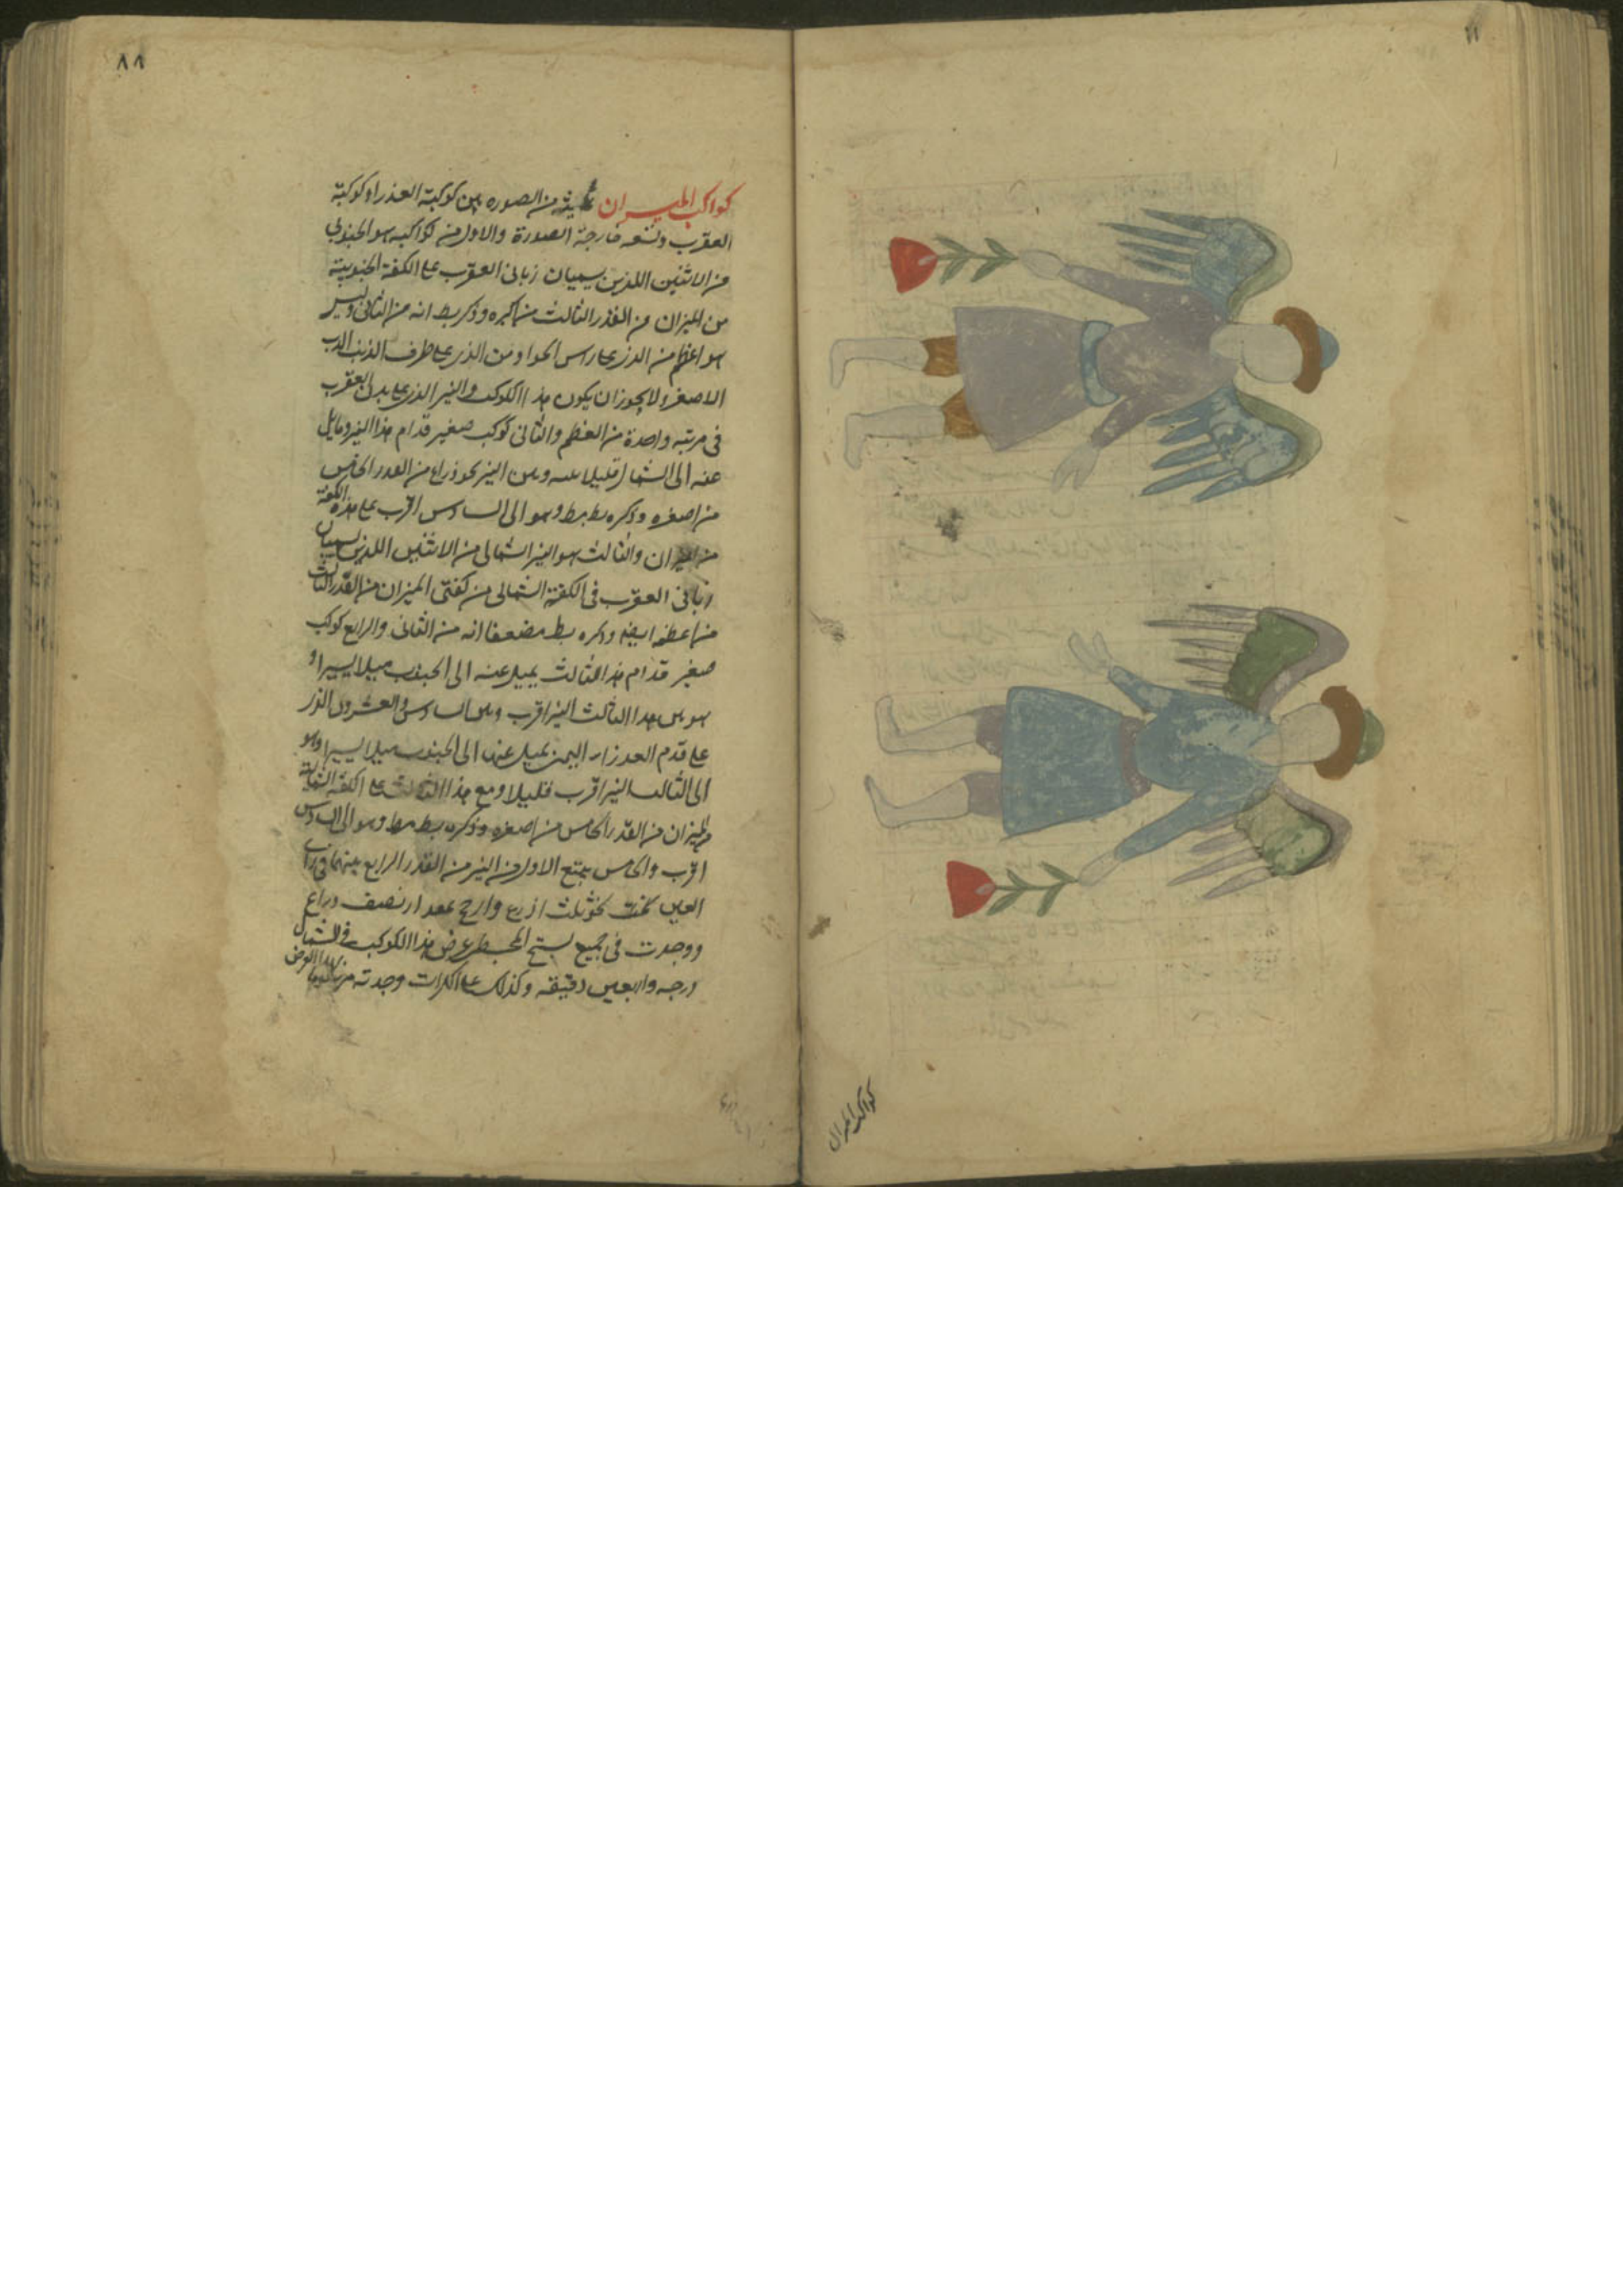 ٨٨
كواكب الميزان ثمنية من الصورة بين كوكبة العذرا وكوكبة
العقرب وتسعه خارجة الصورة والاول من كواكبه هو الجنوبي
من الاثنين اللذين يسميان زباني العقرب على الكفة الجنوبية
من الميزان من القدر الثالث من اكبره وذكر بط انه من الثاني وليس
هو اعظم من الذي على راس الحوا ومن الذي على طرف الذنب الدب
الاصغر ولا يجوز ان يكون هذا الكوكب والنير الذي على بدن العقرب
في مرتبه واحدة من العظم والثاني كوكب صغير قدام هذا النير ومايل
عنه الى الشمال قليلا بينه وبين النير نحو ذراع من القدر الخامس
من اصغره وذكره بط مط وهو الى السادس اقرب على هذه الكفة
من الميزان والثالث هو النير الشمالي من الاثنين اللذين يسميان
زباني العقرب في الكفة الشمالي من كفتي الميزان من القدر الثالث
من اعظمه ايضا وذكره بط مضعفا انه من الثاني والرابع كوكب
صغير قدام هذا الثالث يميل عنه الى الجنوب ميلا يسيرا و
هو بين هذا الثالث النير اقرب وبين السادس والعشرون الذي
على قدم العذرا اليمني يميل عنها الى الجنوب ميلا يسيرا وهو
الى الثالث النير اقرب قليلا ومع هذا الثالث على الكفة الشمالية
من الميزان من القدر الخامس من اصغره وذكره بط مط وهو الى السادس
اقرب والخامس يتبع الاول من النير من القدر الرابع بينهما في راي
العين نحو ثلث اذرع وارجح بمقدار نصف ذراع
ووجدت في جميع نسخ المجسطي عرض هذا الكوكب في الشمال
درجه واربعين دقيقه وكذلك على الكرات وجدته
كواكب الميزان